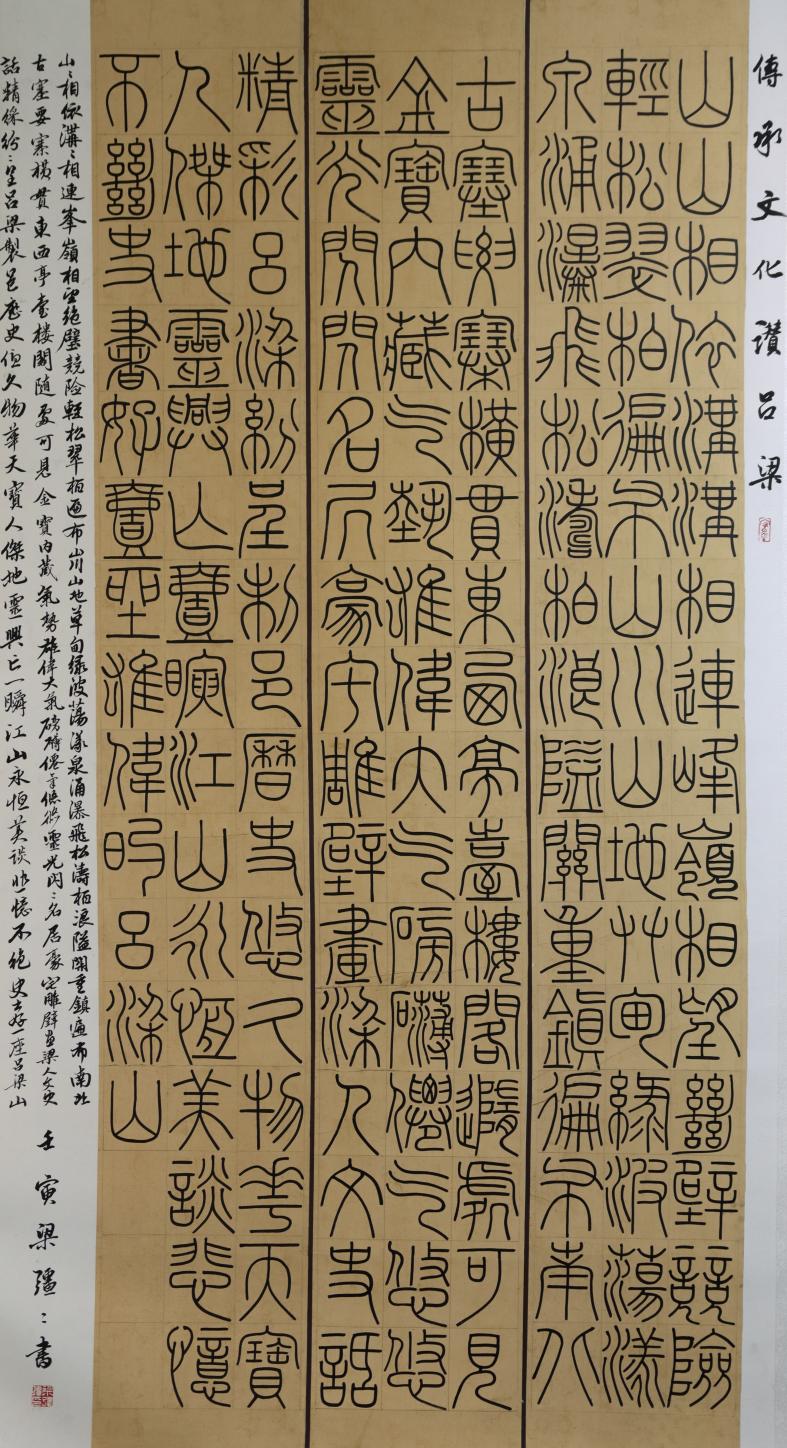 傳承文化讚呂梁
山山相依溝溝相連峰嶺相望絕壁競險
輕松翠柏徧布山川山地艸甸綠波蕩漾
泉涌瀑飛松濤柏浪隘關重鎮徧布南北
古塞要寨橫貫東西亭臺樓閣隨處可見
金寶內藏气勢雄偉大气磅礴僊气悠悠
靈光閃閃名居豪宅雕壁畫梁人文史話
精彩呂梁紛呈制邑曆史悠久物華天寶
人傑地靈興亡壹瞬江山永恆美談悲憶
不絕史書好壹座雄偉的呂梁山
山〻相依溝〻相連峯嶺相望絕壁競险輕松翠柏遍布山川山地草甸綠波蕩漾泉涌瀑飛松濤柏浪隘關重鎮遍布南北
古塞要寨橫貫東西亭臺樓閣隨處可見金寶內藏氣勢雄偉大氣磅礴僊氣悠悠靈光閃〻名居豪宅雕壁畫梁人文史
話精彩紛〻呈呂梁製邑歷史悠久物華天寶人傑地靈興亡一瞬江山永恒美談悲憶不絕史書好一座呂梁山
壬寅梁疆〻書